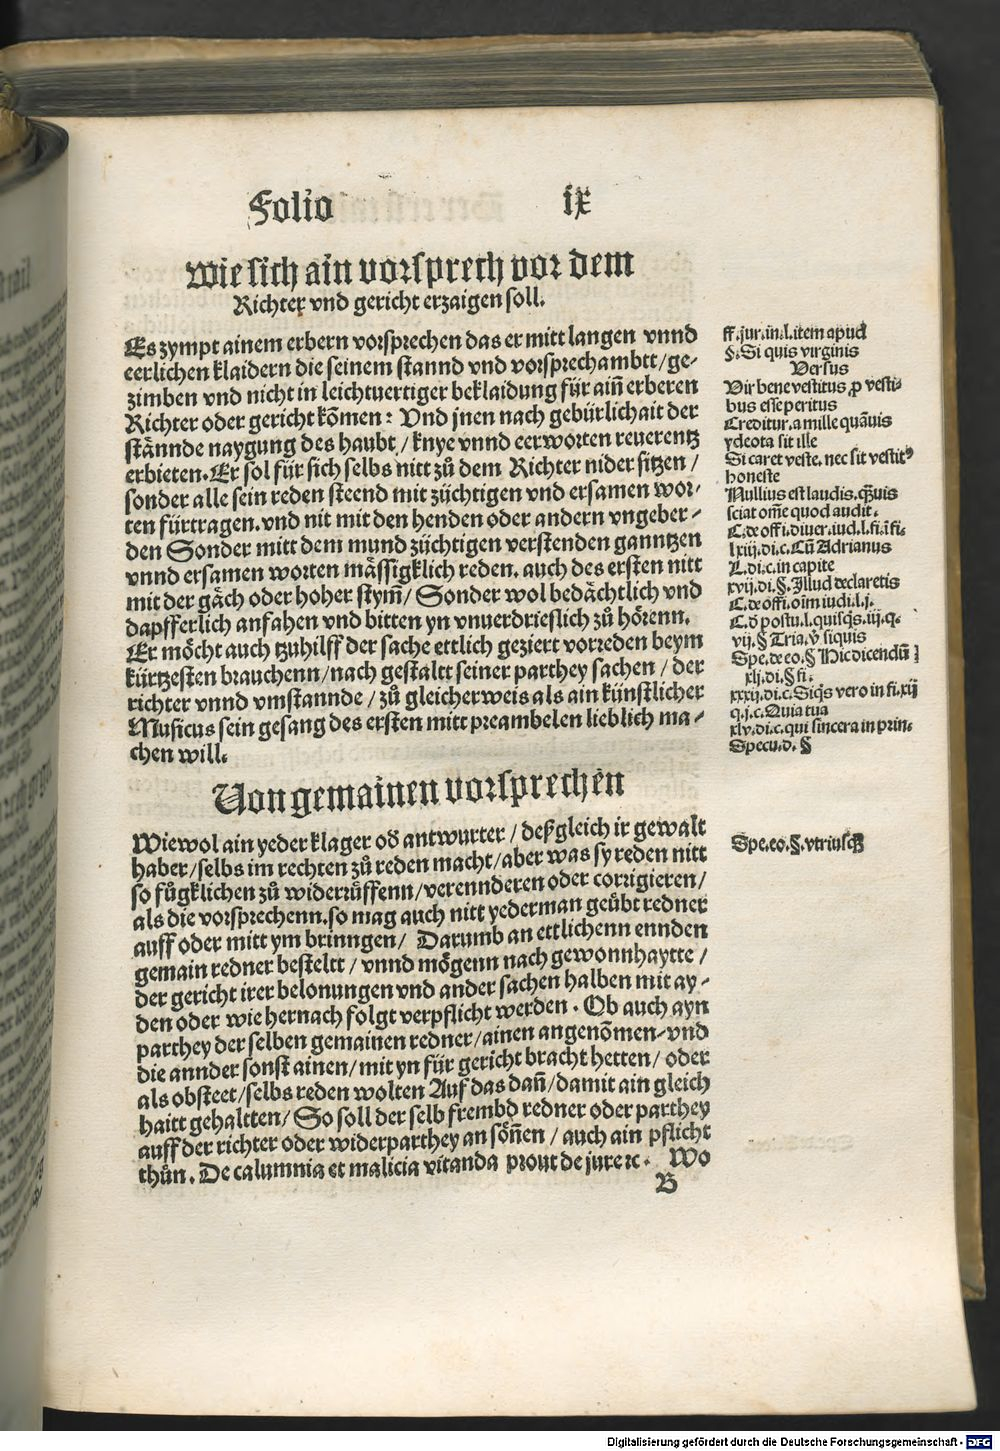 Folio ix
Wie sich ain vorsprech vor dem
Richter vnd gericht erzaigen soll.
Es zympt ainem erbern vorsprechen das er mitt langen vnnd
eerlichen klaidern die seinem stannd vnd vorsprechambtt/ ge-
zimben vnd nicht in leichtuertiger beklaidung für ain̄ erberen
Richter oder gericht kōmen: Vnd jnen nach gebürlichait der
stännde naygung des haubt/ knye vnnd eerworten reuerentz
erbieten. Er sol für sich selbs nitt zů dem Richter nider sitzen/
sonder alle sein reden steend mit züchtigen vnd ersamen wor-
ten fürtragen. vnd nit mit den henden oder andern vngeber-
den Sonder mitt dem mund züchtigen verstenden ganntzen
vnnd ersamen worten mässigklich reden. auch des ersten nitt
mit der gäch oder hoher stym̄/ Sonder wol bedächtlich vnd
dapfferlich anfahen vnd bitten yn vnuerdrieslich zů hörenn.
Er möcht auch tzuhilff der sache ettlich geziert vorreden beym
kürtzesten brauchenn/ nach gestaltt seiner parthey sachen/ der
richter vnnd vmstannde/ zů gleicherweis als ain künstlicher
Musicus sein gesang des ersten mitt preambelen lieblich ma-
chen will.
Von gemainen vorsprechen
Wiewol ain yeder klager od̄ antwurter/ deßgleich ir gewalt
haber/ selbs im rechten zů reden macht/ aber was sy reden nitt
so fůgklichen zů widerrůffenn/ verennderen oder corrigieren/
als die vorsprechenn. so mag auch nitt yederman geübt redner
auff oder mitt ym brinngen/ Darumb an ettlichenn ennden
gemain redner besteltt/ vnnd mögenn nach gewonnhaytte/
der gericht irer belonungen vnd ander sachen halben mit ay-
den oder wie hernach folgt verpflicht werden. Ob auch ayn
parthey der selben gemainen redner/ ainen angenōmen/ vnd
die annder sonst ainen/ mit yn für gericht bracht hetten/ oder
als obsteet/ selbs reden wolten Auf das dan̄/ damit ain gleich
haitt gehaltten/ So soll der selb frembd redner oder parthey
auff der richter oder widerparthey an sön̄en/ auch ain pflicht
thůn. De calumnia et malicia vitanda prout de jure ꝛc. Wo
B
ff. jur. in. l. item apud
§. Si quis virginis
Versus
Vir bene vestitus ꝓ vesti-
bus esse peritus
Creditur. a mille quāuis
ydeota sit ille
Si caret veste. nec sit vestitꝰ
honeste
Nullius est laudis. quis
sciat om̄e quod audit.
C. de offi. diuer. iud. l. fi. ī fi.
lxiij. di. c. Cū Adrianus
L. di. c. in capite
xvij. di. §. Illud declaretis
C. de offi. oīm iudi. l. j.
C. postu. l. quisqs. iij. q.
vij. § Tria. siquis
Spe. de eo. § Hic dicendū
xlj. di. § fi.
xxxij. di. c. Siqs vero in fi. xij
q. j. c. Quia tua
xlv. di. c. qui sincera in prin.
Specu. d. §
Spe. eo. §. vtriusqꝫ
Digitalisierung gefördert durch die Deutsche Forschungsgemeinschaft - DFG